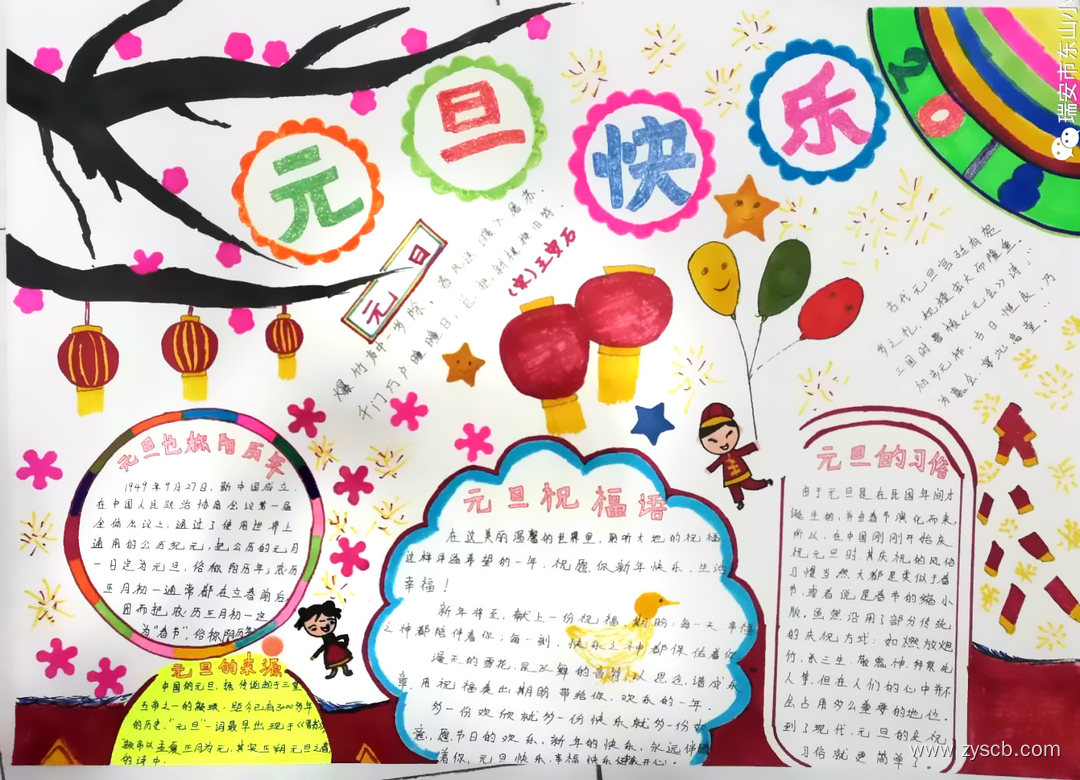 元旦快乐
瑞安市东山小
元旦
爆竹声中一岁除，春风送暖入屠苏．
千门万户曈曈日，总把新桃换旧符．
(宋)王安石
古代元旦宫廷有贺
岁之礼，礼仪宏大而隆重．
三国时曹植《元会》诗：
初步元祚，古日惟良，乃
为嘉会，宴此高堂．
元旦也称阳历年
1949年9月27日，新中国成立．
在中国人民政治协商会议第一届
全体会议上，通过了使用世界上
通用的公历纪元，把公历的元月
一日定为元旦，俗称阳历年；农历
正月初一通常都在立春前后，
因而把农历正月初一定
为"春节"，俗称阴历年
元旦的来源
中国的元旦，据传说起于三皇
五帝之一的颛顼，距今已有3000多年
的历史．"元旦"一词最早出现于《晋书》
的诗中．
元旦祝福语
在这美丽温馨的世界里，聆听大地的祝福
这样洋溢希望的一年，祝愿你新年快乐，生活
幸福！
新年将至，献上一份祝福期盼：每一天，幸福
之神都陪伴着你；每一刻，快乐之神都保佑着你
漫天的雪花，是飞舞的音符，以思念谱成乐
章，用祝福奏出期盼带给你，欢乐的一年．
多一份欢欣就多一份快乐就多一份如
意，愿节日的欢乐，新年的快乐，永远伴随
着你，元旦快乐，幸福快乐
元旦的习俗
由于元旦是在民国年间才
诞生的，并由春节演化而来
所以，在中国刚刚开始庆
祝元旦时其庆祝的风俗
习惯当然大都是类似于春
节，或者说是春节的缩小
版，虽然沿用了部分传统
的庆祝方式：如燃放炮
竹，杀三生，敬鬼神，拜祭先
人等，但在人们的心中并不
占占用多么重要的地位．
到了现代，元旦的庆祝
习俗就更简单了．
www.zyscb.com